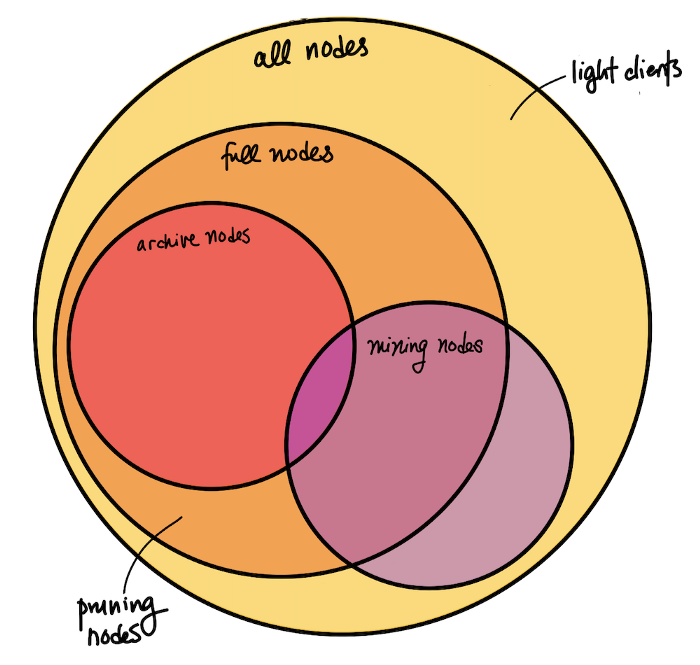 all nodes
light clients
full nodes
archive nodes
mining nodes
pruning
nodes